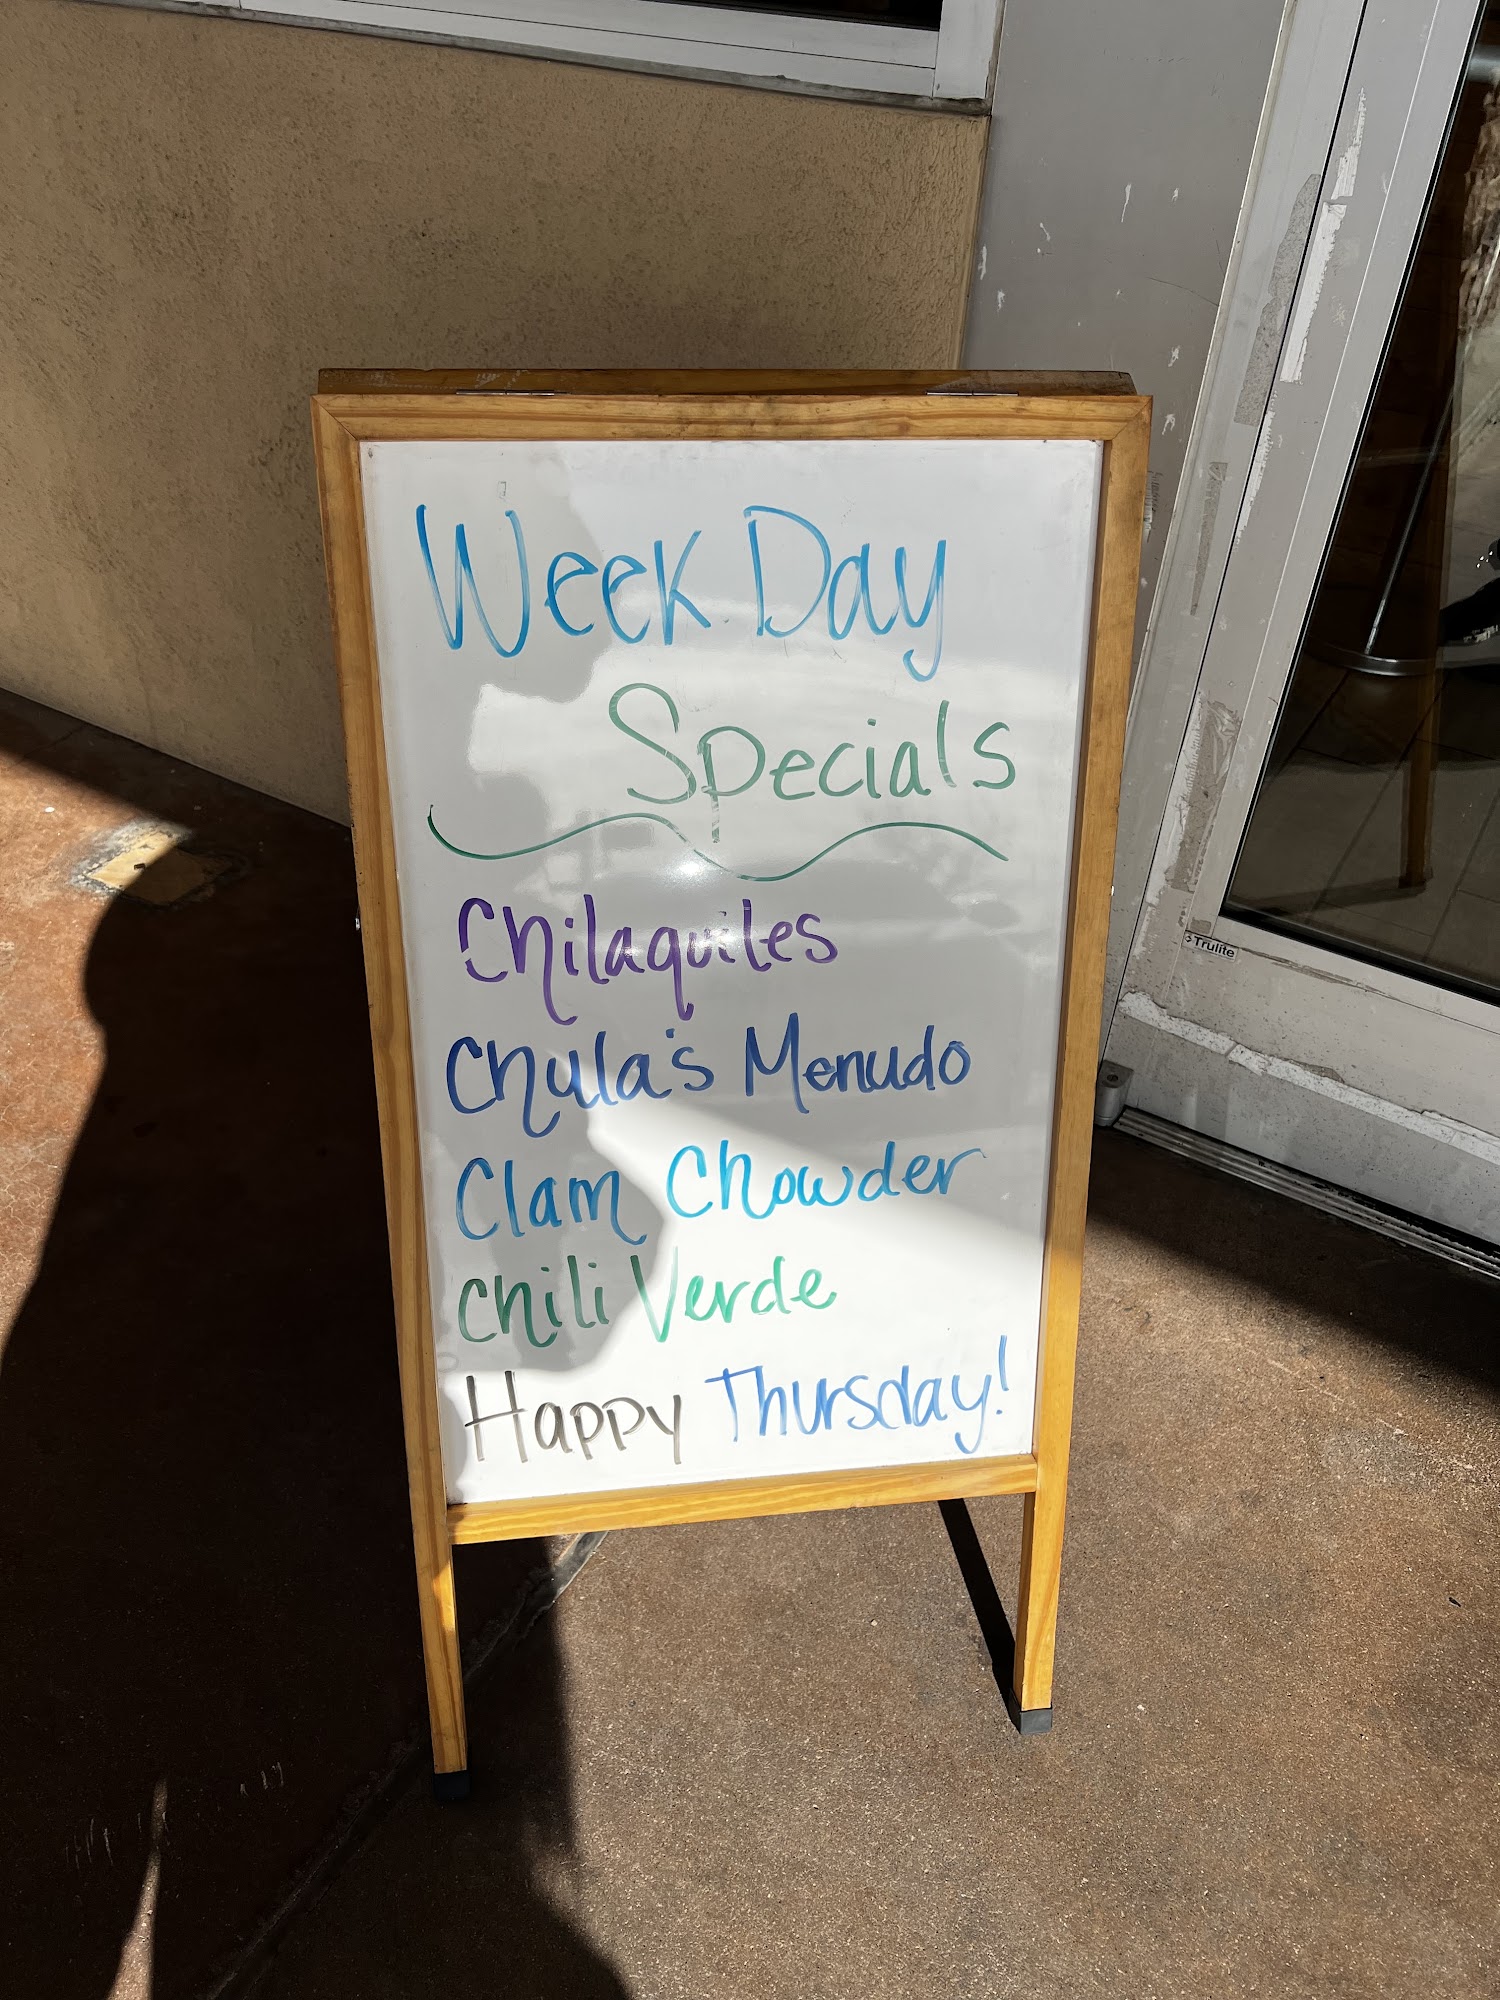 Week Day
Specials
Chilaquiles
Chula's Menudo
Clam Chowder
Chili Verde
Happy Thursday!
Trulite